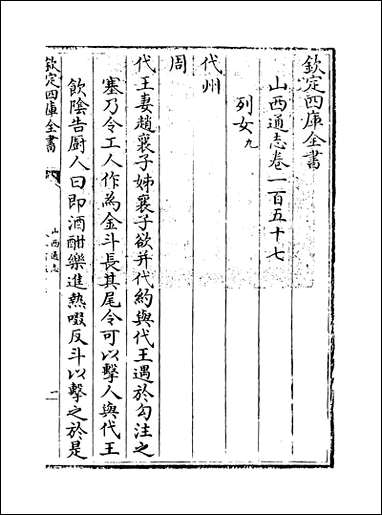 欽定四庫全書
山西通志卷一百五十七
列女九
代州
周
代王妻趙襄子姊襄子欲并代約與代王遇於勾注之
塞乃令工人作為金斗長其尾令可以擊人與代王
飲陰告厨人曰即酒酣樂進熱啜反斗以擊之於是
欽定四庫全書
山西通志